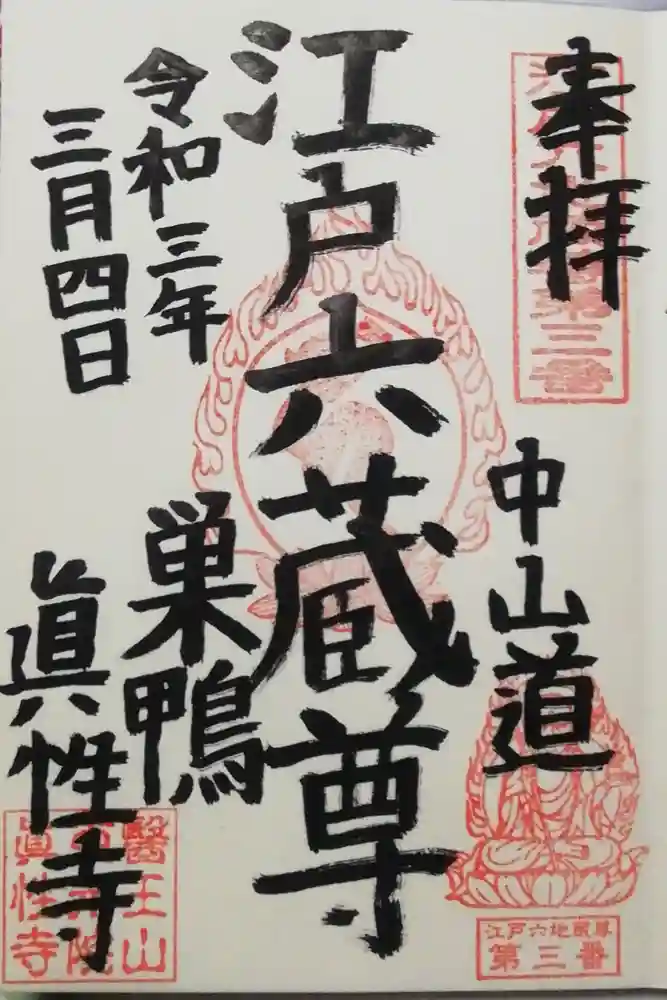 奉拝
第三番
中山道
江戸六地蔵尊
第三番
江戸六蔵尊
令和三年
三月四日
巣鴨
眞性寺
醫王山
院
眞性寺